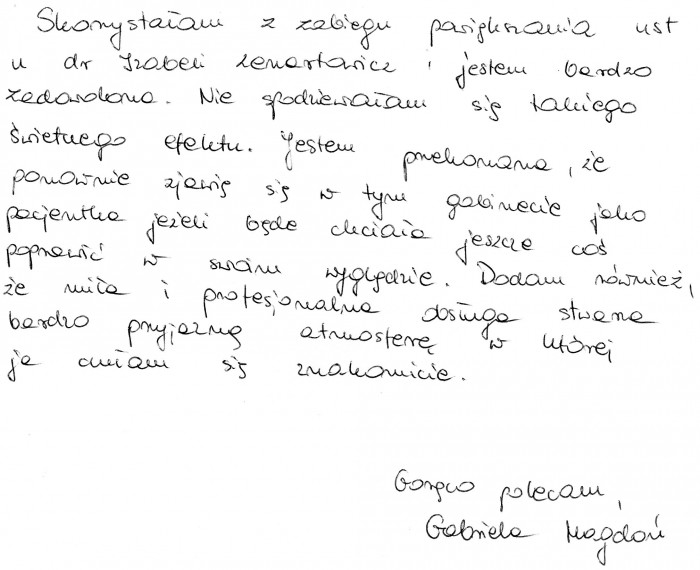 Skorzystałam z zabiegu powiększania ust
u dr Izabeli Lenartowicz i jestem bardzo
zadowolona. Nie spodziewałam się takiego
świetnego efektu. Jestem przekonana, że
ponownie zjawię się w tym gabinecie jako
pacjentka jeżeli będę chciała jeszcze coś
poprawić w swoim wyglądzie. Dodam również,
że miła i profesjonalna obsługa stwarza
bardzo przyjazną atmosferę w której
ja czułam się znakomicie.
Gorąco polecam,
Gabriela Magdoń